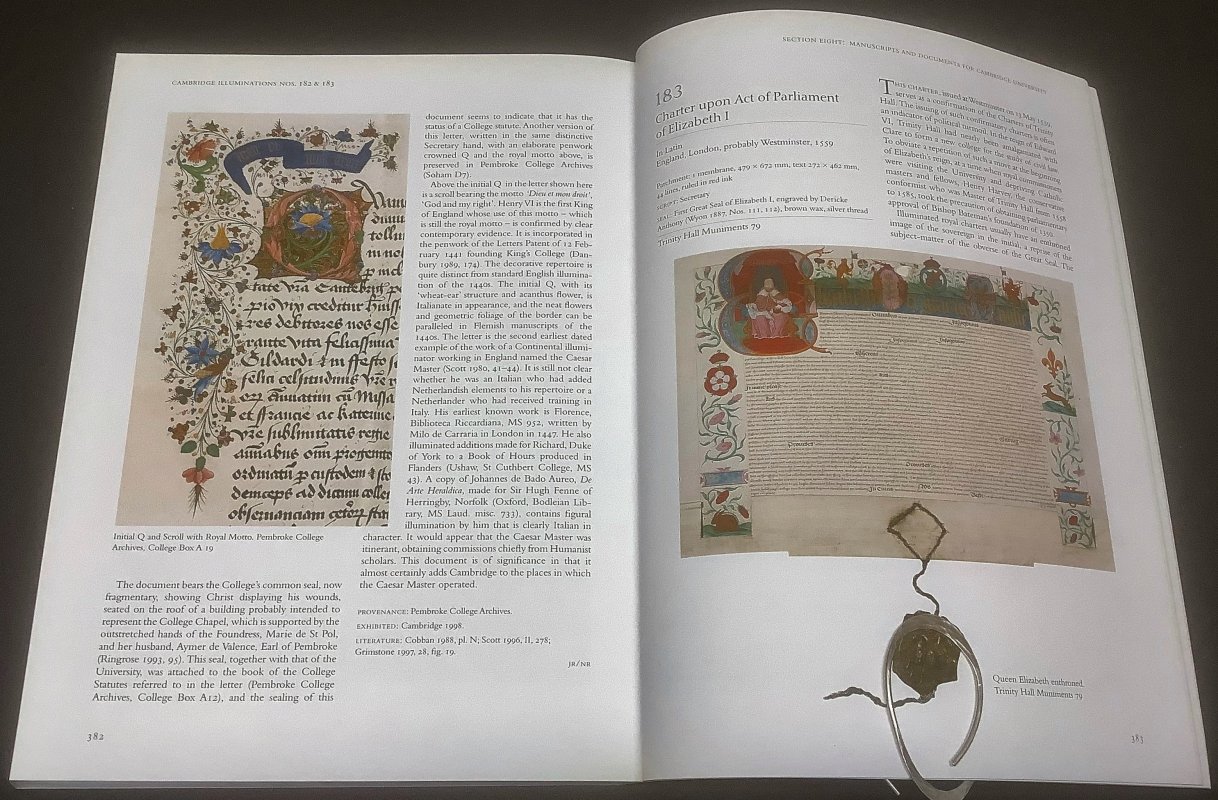 CAMBRIDGE ILLUMINATIONS NOS. 182 & 183
document seems to indicate that it has the
status of a College statute. Another version of
this letter, written in the same distinctive
Secretary hand, with an elaborate penwork
crowned Q and the royal motto above, is
preserved in Pembroke College Archives
(Soham D7).
Above the initial Q in the letter shown here
is a scroll bearing the motto 'Dieu et mon droit',
'God and my right'. Henry VI is the first King
of England whose use of this motto – which
is still the royal motto – is confirmed by clear
contemporary evidence. It is incorporated in
the penwork of the Letters Patent of 12 Feb-
ruary 1441 founding King's College (Dan-
bury 1989, 174). The decorative repertoire is
quite distinct from standard English illumina-
tion of the 1440s. The initial Q, with its
'wheat-ear' structure and acanthus flower, is
Italianate in appearance, and the neat flowers
and geometric foliage of the border can be
paralleled in Flemish manuscripts of the
1440s. The letter is the second earliest dated
example of the work of a Continental illumi-
nator working in England named the Caesar
Master (Scott 1980, 41–44). It is still not clear
whether he was an Italian who had added
Netherlandish elements to his repertoire or a
Netherlander who had received training in
Italy. His earliest known work is Florence,
Biblioteca Riccardiana, MS 952, written by
Milo de Carraria in London in 1447. He also
illuminated additions made for Richard, Duke
of York to a Book of Hours produced in
Flanders (Ushaw, St Cuthbert College, MS
43). A copy of Johannes de Bado Aureo, De
Arte Heraldica, made for Sir Hugh Fenne of
Herringby, Norfolk (Oxford, Bodleian Lib-
rary, MS Laud. misc. 733), contains figural
illumination by him that is clearly Italian in
character. It would appear that the Caesar Master was
itinerant, obtaining commissions chiefly from Humanist
scholars. This document is of significance in that it
almost certainly adds Cambridge to the places in which
the Caesar Master operated.
PROVENANCE: Pembroke College Archives.
EXHIBITED: Cambridge 1998.
LITERATURE: Cobban 1988, pl. N; Scott 1996, II, 278;
Grimstone 1997, 28, fig. 19.
JR/NR
Initial Q and Scroll with Royal Motto. Pembroke College
Archives, College Box A 19
The document bears the College's common seal, now
fragmentary, showing Christ displaying his wounds,
seated on the roof of a building probably intended to
represent the College Chapel, which is supported by the
outstretched hands of the Foundress, Marie de St Pol,
and her husband, Aymer de Valence, Earl of Pembroke
(Ringrose 1993, 95). This seal, together with that of the
University, was attached to the book of the College
Statutes referred to in the letter (Pembroke College
Archives, College Box A12), and the sealing of this
382
SECTION EIGHT: MANUSCRIPTS AND DOCUMENTS FOR CAMBRIDGE UNIVERSITY
183
Charter upon Act of Parliament
of Elizabeth I
In Latin
England, London, probably Westminster, 1559
Parchment: 1 membrane, 479 × 672 mm, text 272 × 462 mm,
44 lines, ruled in red ink
SCRIPT: Secretary
SEAL: First Great Seal of Elizabeth I, engraved by Dericke
Anthony (Wyon 1887, Nos. 111, 112), brown wax, silver thread
Trinity Hall Muniments 79
THIS CHARTER, issued at Westminster on 13 May 1559,
serves as a confirmation of the Charters of Trinity
Hall. The issuing of such confirmatory charters is often
an indicator of political turmoil. In the reign of Edward
VI, Trinity Hall had nearly been amalgamated with
Clare to form a new college for the study of civil law.
To obviate a repetition of such a move at the beginning
of Elizabeth's reign, at a time when royal commissioners
were visiting the University and depriving Catholic
masters and fellows, Henry Harvey, the conservative
conformist who was Master of Trinity Hall from 1558
to 1585, took the precaution of obtaining parliamentary
approval of Bishop Bateman's foundation of 1350.
Illuminated royal charters usually have an enthroned
image of the sovereign in the initial, a reprise of the
subject-matter of the obverse of the Great Seal. The
Queen Elizabeth enthroned.
Trinity Hall Muniments 79
383